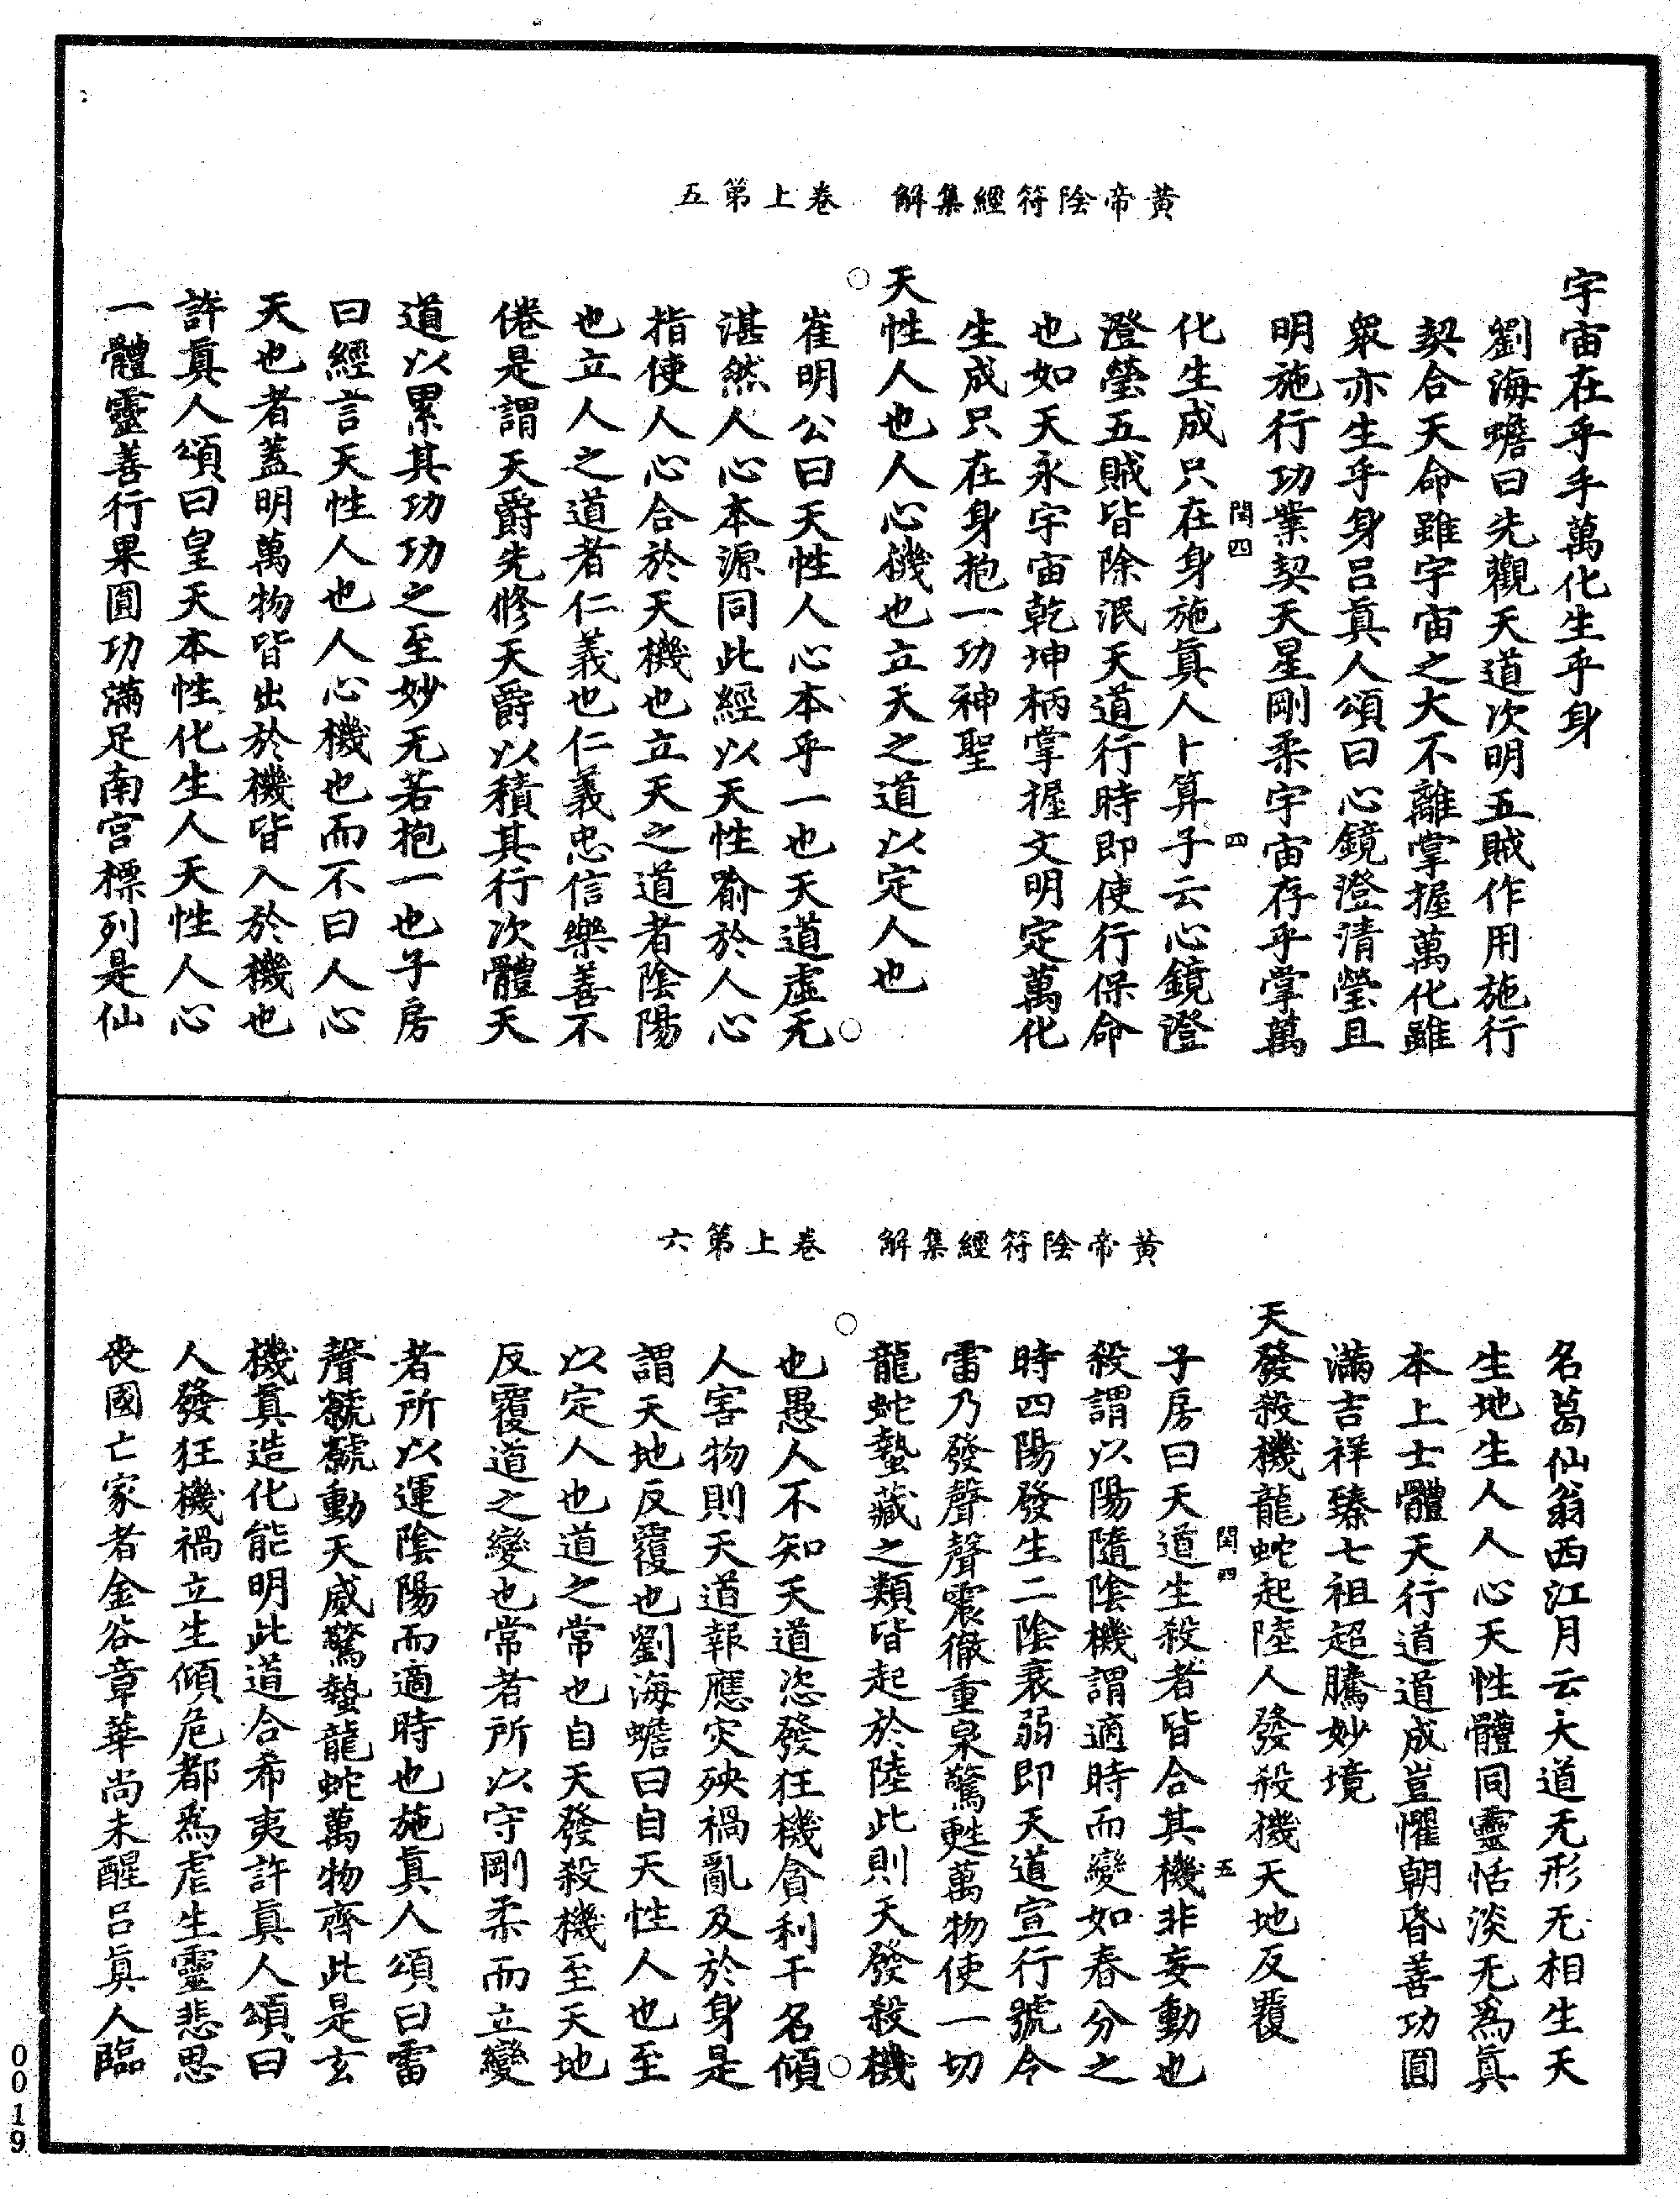 黃帝陰符經集解　卷上第五
宇宙在乎手萬化生乎身
劉海蟾曰先觀天道次明五賊作用施行
契合天命雖宇宙之大不離掌握萬化雖
衆亦生乎身呂眞人頌曰心鏡澄清瑩且
明施行功業契天星剛柔宇宙存乎掌萬
閏四　四
化生成只在身施眞人卜算子云心鏡澄
澄瑩五賊皆除泯天道行時即使行保命
也如天永宇宙乾坤柄掌握文明定萬化
生成只在身抱一功神聖
天性人也人心機也立天之道以定人也
崔明公曰天性人心本乎一也天道虛无
湛然人心本源同此經以天性喻於人心
指使人心合於天機也立天之道者陰陽
也立人之道者仁義也仁義忠信樂善不
倦是謂天爵先修天爵以積其行次體天
道以累其功功之至妙无若抱一也子房
曰經言天性人也人心機也而不曰人心
天也者蓋明萬物皆出於機皆入於機也
許眞人頌曰皇天本性化生人天性人心
一體靈善行果圓功滿足南宮標列是仙
黃帝陰符經集解　卷上第六
名葛仙翁西江月云大道无形无相生天
生地生人人心天性體同靈恬淡无爲眞
本上士體天行道道成豈懼朝昏善功圓
滿吉祥臻七祖超騰妙境
天發殺機龍蛇起陸人發殺機天地反覆
閏四　五
子房曰天道生殺者皆合其機非妄動也
殺謂以陽隨陰機謂適時而變如春分之
時四陽發生二陰衰弱即天道宣行號令
雷乃發聲聲震徹重泉驚甦萬物使一切
龍蛇蟄藏之類皆起於陸此則天發殺機
也愚人不知天道恣發狂機貪利干名傾
人害物則天道報應灾殃禍亂及於身是
謂天地反覆也劉海蟾曰自天性人也至
以定人也道之常也自天發殺機至天地
反覆道之變也常者所以守剛柔而立變
者所以運陰陽而適時也施眞人頌曰雷
聲虩虩動天威驚蟄龍蛇萬物齊此是玄
機眞造化能明此道合希夷許眞人頌曰
人發狂機禍立生傾危都爲虐生靈悲思
喪國亡家者金谷章華尚未醒呂眞人臨
0019